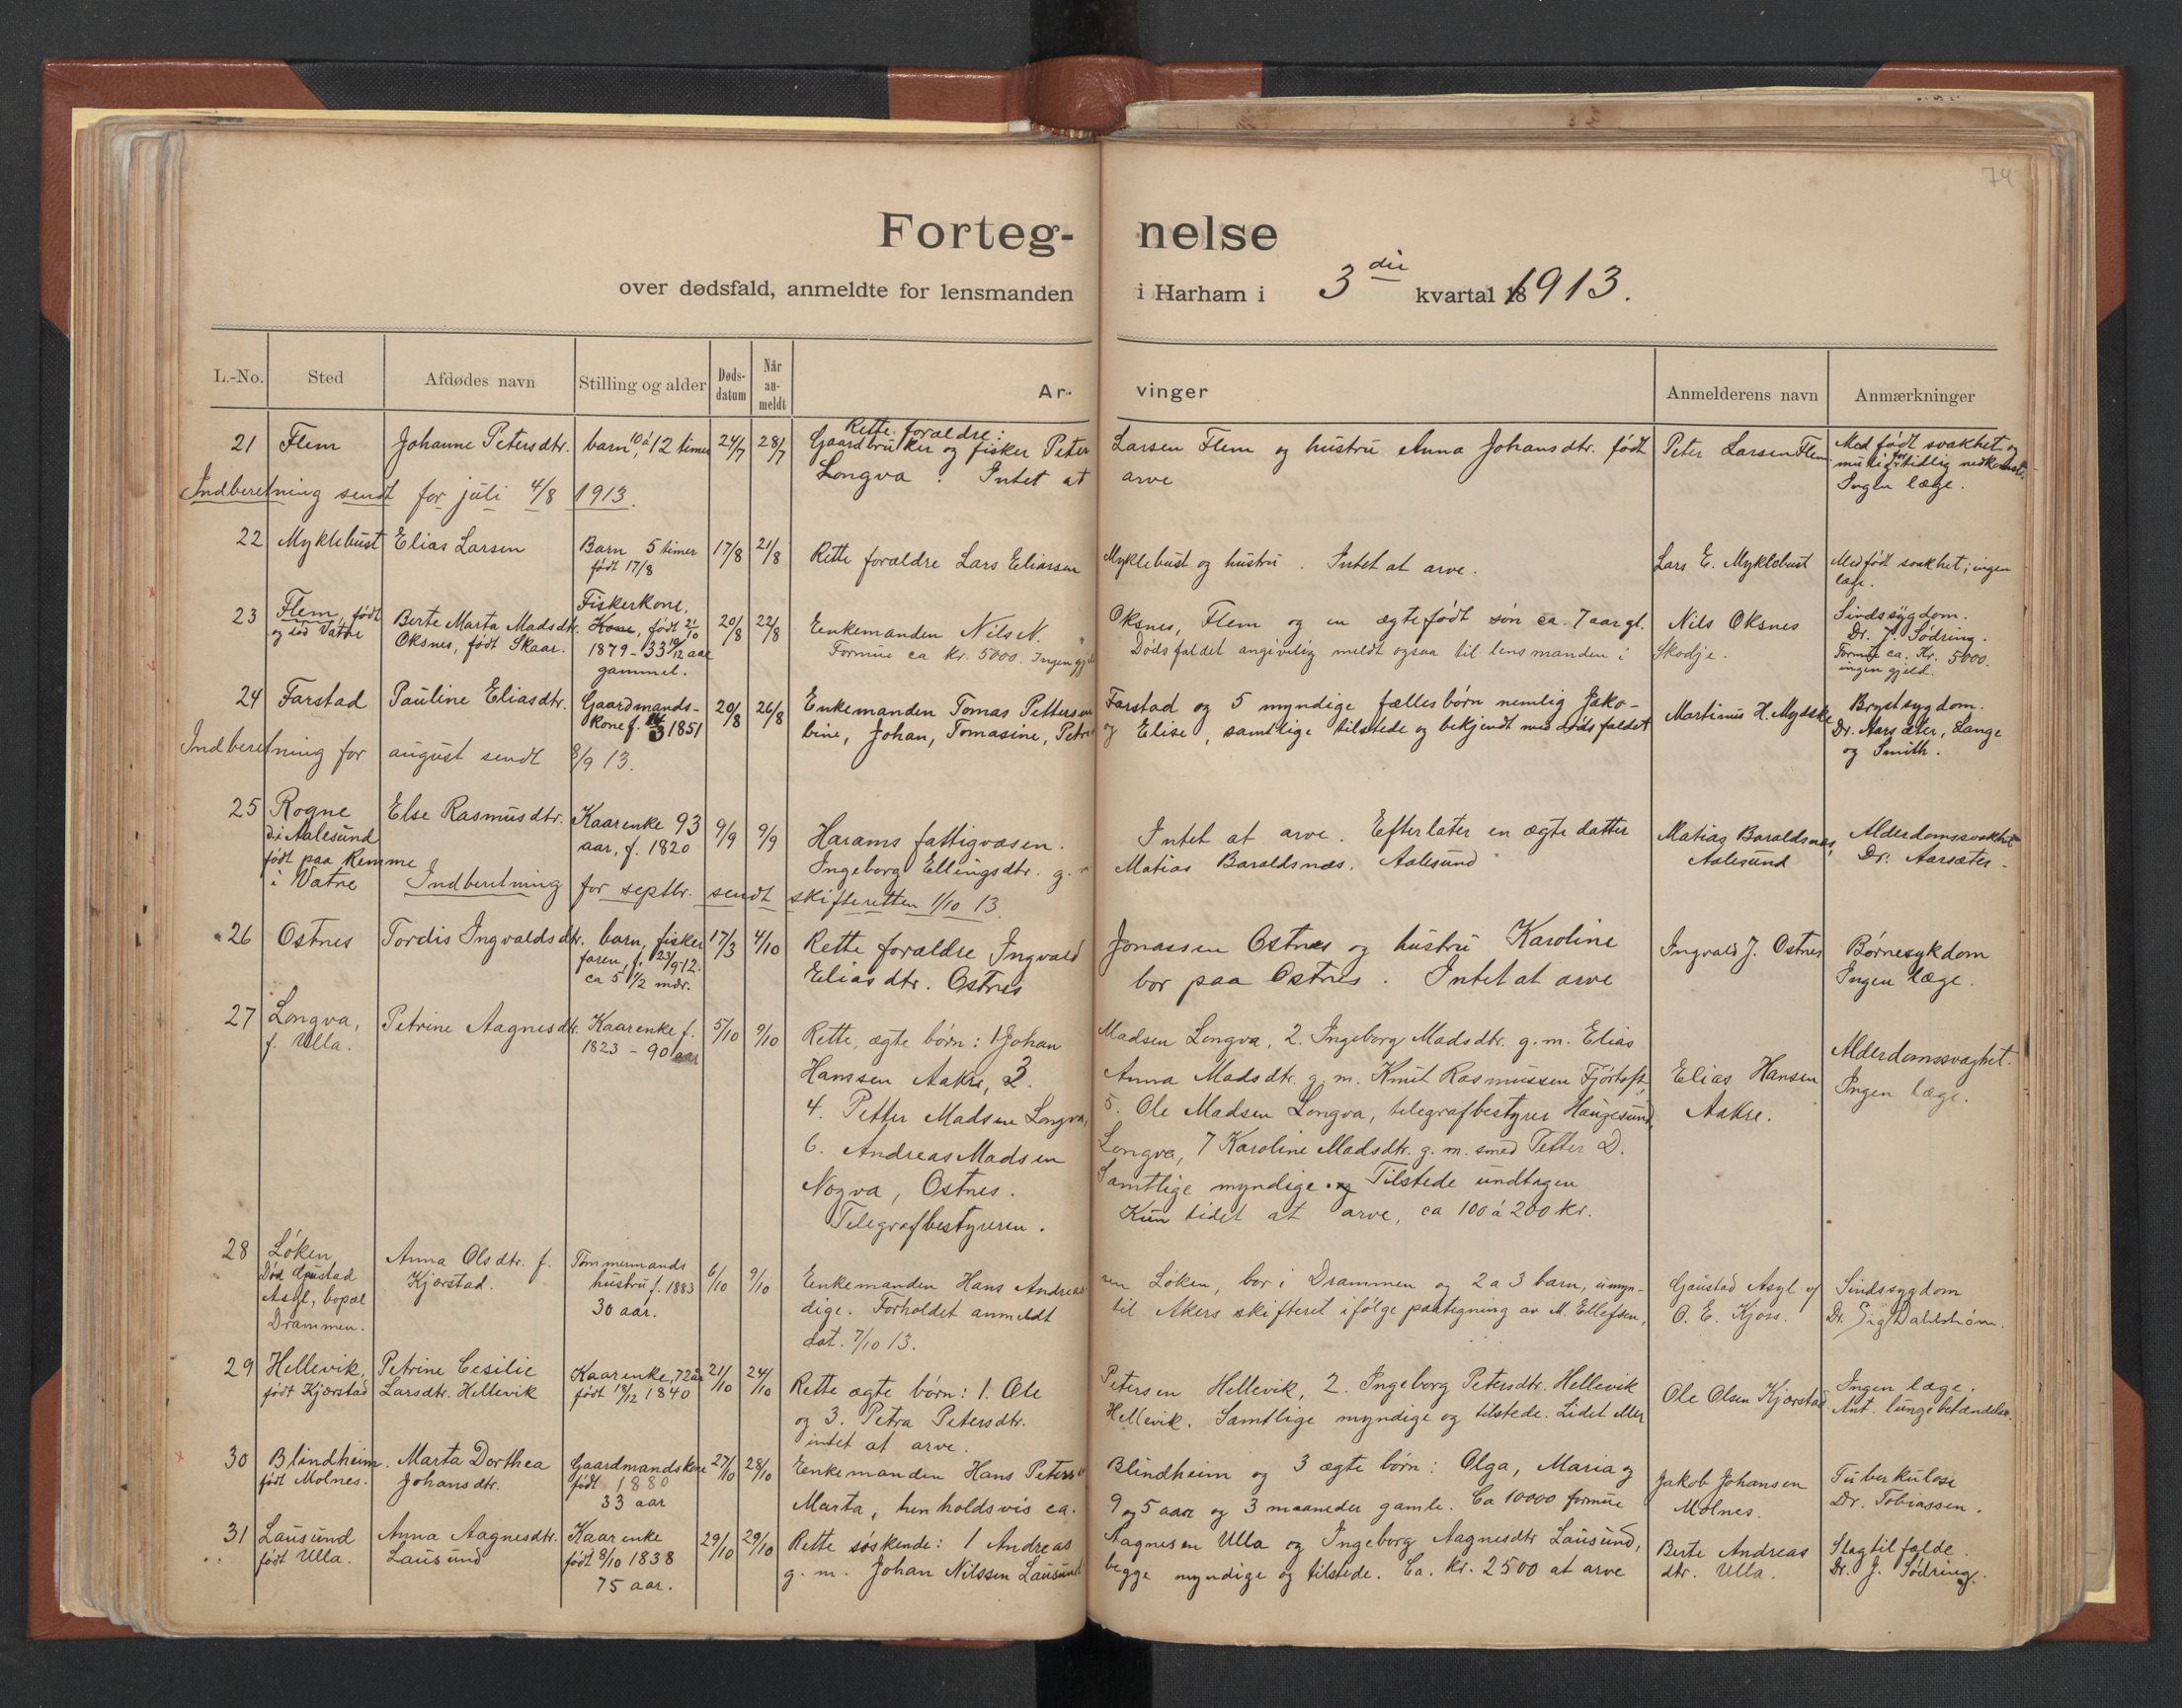 74
Forteg- nelse
over dødsfald, anmeldte for lensmanden i Harham i 3die kvartal 1913.
L.-No. Sted Afdødes navn Stilling og alder Døds-datum Når an-meldt Ar- vinger Anmelderens navn Anmærkninger
21 Flem Johanne Petersdtr. barn, 10 à 12 timer 24/7 28/7 Rette forældre: Gaardbruker og fisker Peter Larsen Flem og hustru Anna Johansdtr. født Peter Larsen Flem Medfødt svakhet og
Longva. Intet at arve for tidlig nedkomst.
Ingen læge.
Indberetning sendt for juli 4/8 1913.
22 Myklebust Elias Larsen Barn 5 timer 17/8 21/8 Rette forældre Lars Eliassen Myklebust og hustru. Intet at arve. Lars E. Myklebust Medfødt svakhet; ingen
født 17/8 læge.
23 Flem, født Berte Marta Madsdtr. Fiskerkone. Kone, født 21/10 20/8 22/8 Enkemanden Nils N. Oksnes, Flem og en ægtefødt søn ca. 7 aar gl. Nils Oksnes Sindssygdom.
og død Vatne Oksnes, født Skaar. 1879 - 33 10/12 aar Formue ca kr. 5000. Ingen gjæld Dødsfaldet angivelig meldt ogsaa til lensmanden i Skodje. Dr. J. Sødring.
gammel. Formue ca. Kr. 5000.
ingen gjeld.
24 Farstad Pauline Eliasdtr. Gaardmands- 20/8 26/8 Enkemanden Tomas Pettersen Farstad og 5 myndige fællesbørn nemlig Jako- Martinus H. Mydske Brystsygdom.
kone f. 14/3 1851 bine, Johan, Tomasine, Petra og Elise, samtlige tilstede og bekjendt med dødsfaldet Dr. Aarsæter, Lange
og Smith.
Indberetning for august sendt 8/9 13.
25 Rogne Else Rasmusdtr. Kaarenke 93 9/9 9/9 Harams fattigvæsen. Intet at arve. Efterlater en ægte datter Matias Baraldsnes, Alderdomssvakhet
d. i Aalesund aar, f. 1820 Ingeborg Ellingsdtr. g. m Matias Baraldsnæs. Aalesund Aalesund Dr. Aarsæter
født paa Remme
i Vatne
Indberetning for septbr. sendt skifteretten 1/10 13.
26 Ostnes Tordis Ingvaldsdtr. barn, fisker 17/3 4/10 Rette forældre Ingvald Jonassen Ostnes og hustru Karoline Ingvald J. Ostnes Børnesykdom
faren, f. 23/9-12. Eliasdtr. Ostnes bor paa Ostnes. Intet at arve Ingen læge.
ca 5 1/2 mdr.
27 Longva, Petrine Aagnesdtr. Kaarenke f. 5/10 9/10 Rette, ægte børn: 1 Johan Madsen Longva, 2. Ingeborg Madsdtr. g. m. Elias Alderdomssvaghet.
f. Ulla. 1823 - 90 aar Hanssen Aakre, 3. Anna Madsdtr. g. m. Knut Rasmussen Fjørtoft Elias Hansen Ingen læge.
4. Petter Madsen Longva, 5. Ole Madsen Longva, telegrafbestyrer Haugesund, Aakre.
6. Andreas Madsen Longva, 7 Karoline Madsdtr. g. m. smed Petter D.
Nogva, Ostnes. Samtlige myndige og Tilstede undtagen
Telegrafbestyreren. Kun lidet at arve, ca 100 à 200 kr.
28 Løken Anna Olsdtr. f. Tømmermands 6/10 9/10 Enkemanden Hans Andreassen Løken, bor i Drammen og 2 a 3 barn, umyn- Gaustad Asyl v/ Sindssygdom
Død Gaustad Kjærstad. hustru f. 1883 dige. Forholdet anmeldt til Akers skifteret ifølge paategning av M. Ellefsen, O. E. Kjøss. Dr. Sig. Dahlstrøm.
Asyl, bopæl 30 aar. dat. 7/10 13.
Drammen.
29 Hellevik, Petrine Cesilie Kaarenke, 72 aar 21/10 24/10 Rette ægte børn: 1. Ole Petersen Hellevik, 2. Ingeborg Petersdtr. Hellevik Ole Olsen Kjærstad Ingen læge.
født Kjærstad Larsdtr. Hellevik født 18/12 1840 og 3. Petra Petersdtr. Hellevik. Samtlige myndige og tilstede. Lidet eller Ant. lungebetændelse.
intet at arve.
30 Blindheim. Marta Dorthea Gaardmandskone 27/10 28/10 Enkemanden Hans Peterson Blindheim og 3 ægte børn: Olga, Maria og Jakob Johansen Tuberkulose
født Molnes. Johansdtr. født 1880 Marta, henholdsvis ca. 9 og 5 aar og 3 maaneder gamle. Ca 10000 formue Molnes. Dr. Tobiassen.
33 aar
31 Lausund Anna Aagnesdtr. Kaarenke 29/10 29/10 Rette søskende: 1 Andreas Aagnesen Ulla og Ingeborg Aagnesdtr Lausund, Berte Andreas Slagtilfælde.
født Ulla. Lausund født 8/10 1838 g. m. Johan Nilssen Lausund begge myndige og tilstede. Ca. kr. 2500 at arve dtr. Ulla. Dr. J. Sødring.
75 aar.